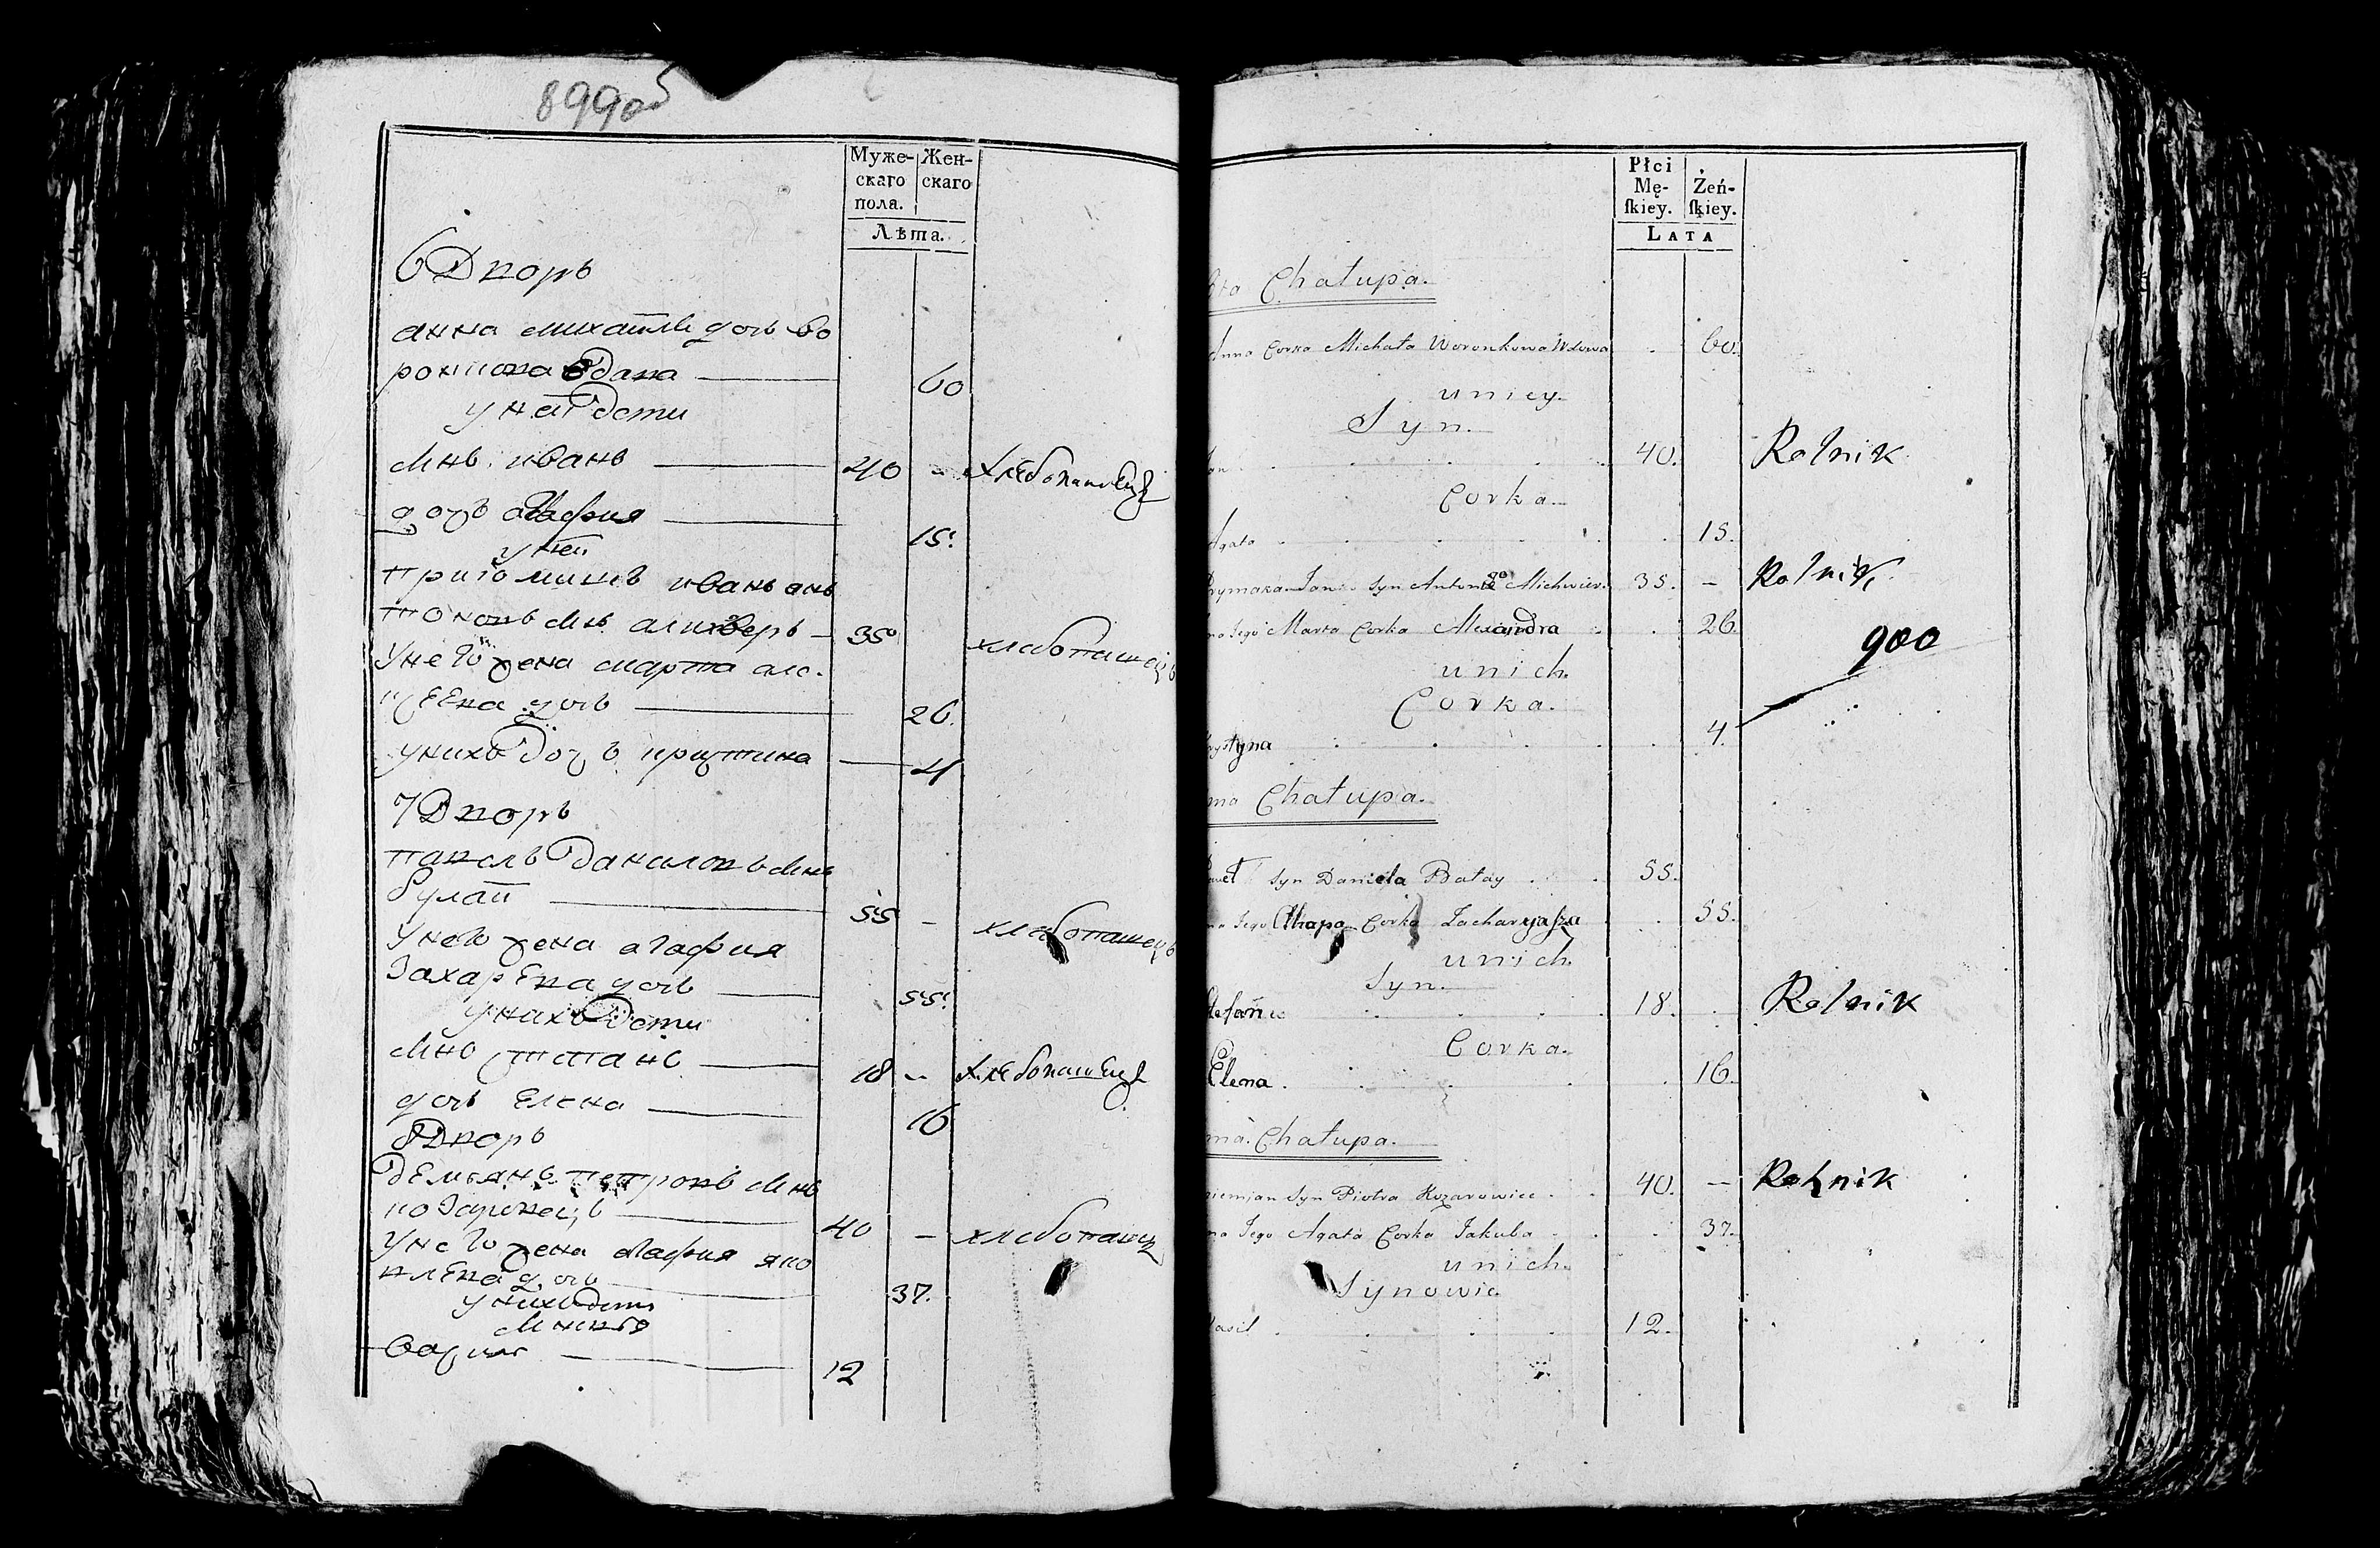 899об
Муже- Жен-
скаго скаго
пола.
Лѣта.
6 Дворъ
анна михайлов дочь во
ронкова вдова — 60
у ней дети
сынъ иванъ — 40 - Хлебопашецъ
дочь агафия — 15
у ней
приіомышъ иванъ ан
тоновъ сынъ — 35 хлебопашецъ
у него жена марта але
дочь — 26
у нихъ дочь криштина — 4
7 Дворъ
павелъ даниловъ сынъ
булай — 55 - хлебопашецъ
у него жена агафия
захарева дочь — 55
у нихъ дети
сынъ степанъ — 18 - Хлебопашецъ
дочь елена — 16
8 Дворъ
демьянъ петровъ сынъ
— 40 - хлебопашец
у него жена агафия яко
влева дочь — 37
у нихъ дети
василь — 12
Płci
Mę- Żeń-
skiey. skiey.
LATA
sta Chałupa.
Anna Corka Michała Woronkowa Wdowa . 60.
u niey
Syn.
Jan . 40. Rolnik
Corka
Agata . 15.
Prymaka Jan Syn Antoniego 35. - Rolnik
na Jego Marta Corka Alexandra . 26.
900
u nich
Corka.
rystyna . 4.
ma Chałupa.
Paweł Syn Daniela Bałay . 55.
na Jego Ahapa Corka Zacharyasza . 55.
u nich
Syn.
Stefan . 18. Rolnik
Corka.
Elena . 16.
ma Chałupa.
Diemian Syn Piotra Kozarowiec . 40. - Rolnik
na Jego Agata Corka Jakuba . 37.
u nich
Synowie
Wasil . 12.